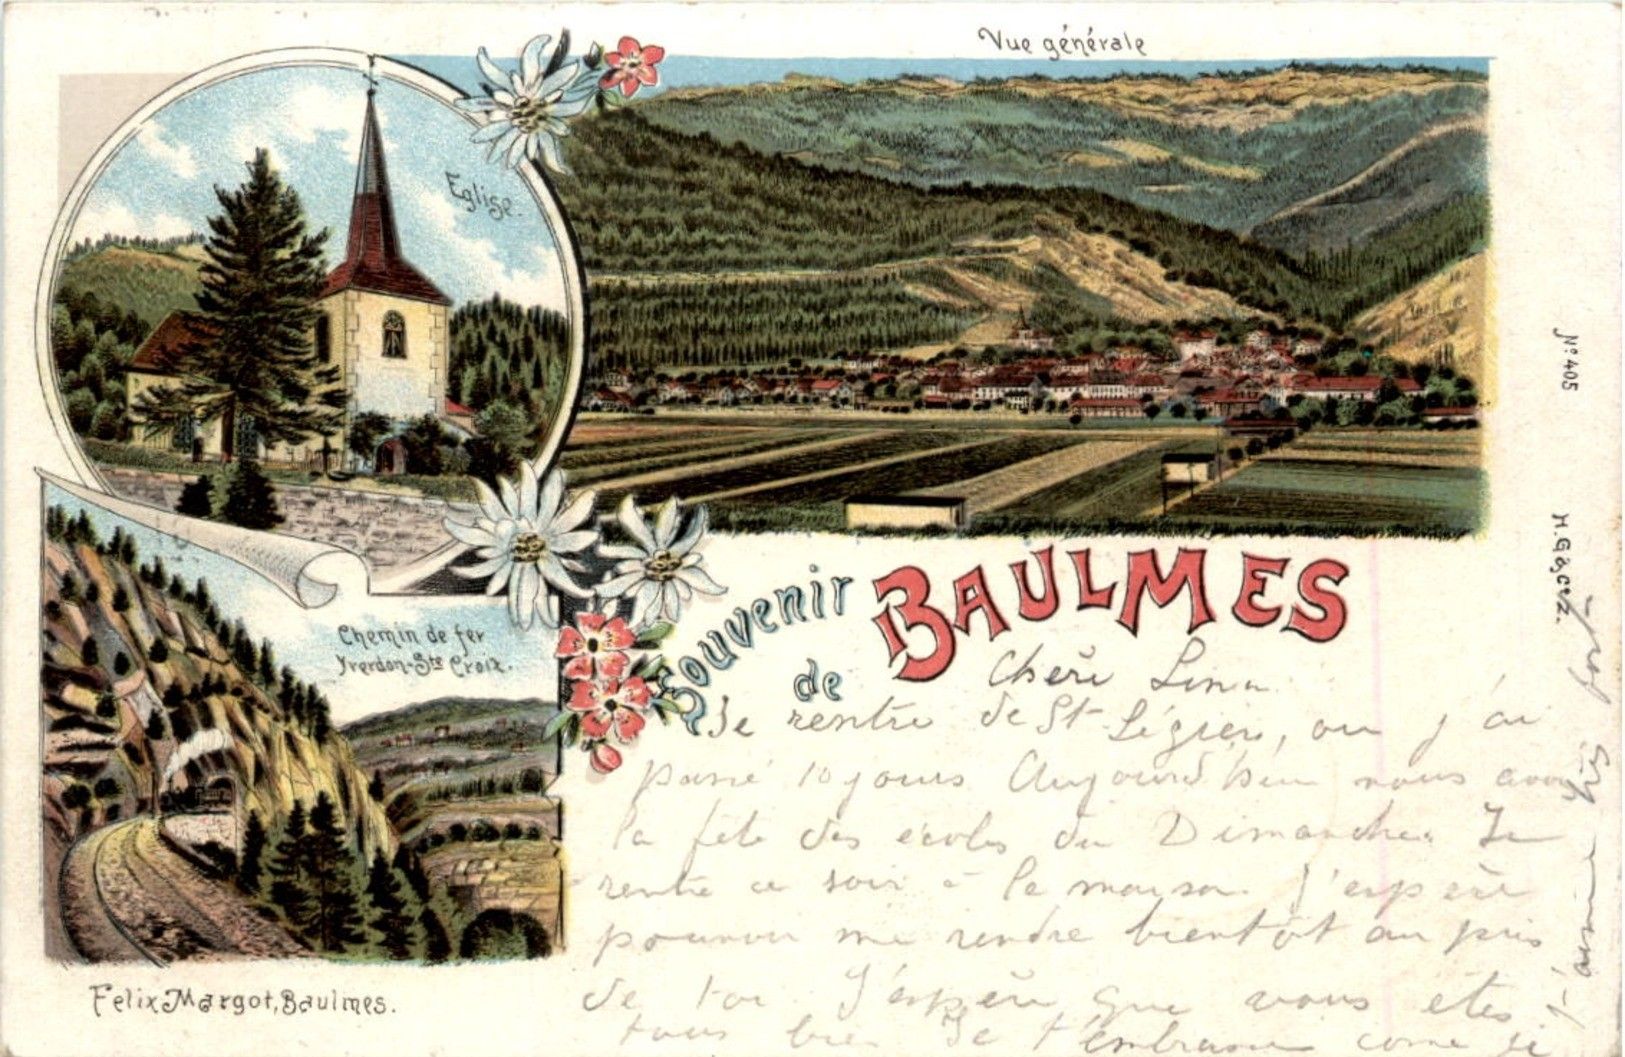 Vue générale
Eglise.
Chemin de fer
Yverdon-Ste Croix.
Souvenir
de
BAULMES
Felix Margot, Baulmes.
No 405
Chère Lina
Je rentre de St Légier, ou j'ai
passé 10 jours Aujourd'hui nous avons
la fête des écoles du Dimanche. Je
rentre ce soir à la maison. J'espère
pouvoir me rendre bientôt au près
de toi J'espère que vous êtes
tous bien Je t'embrasse come je
t'aime très fort